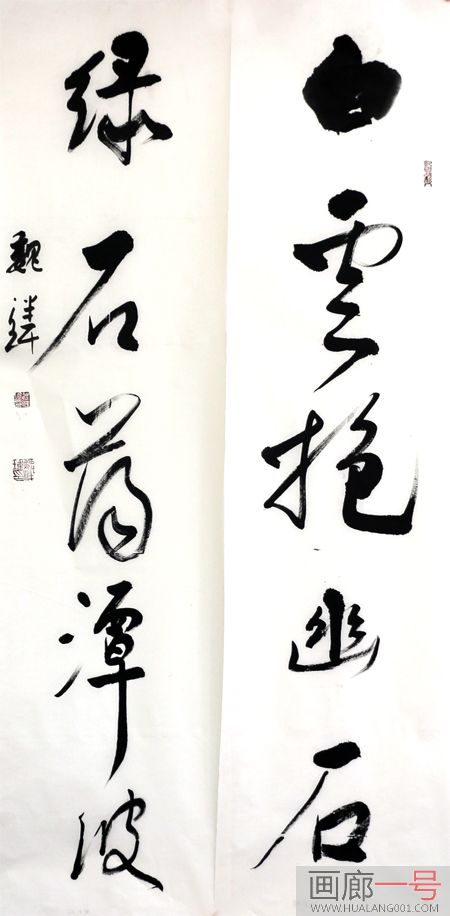 白雲抱幽石
綠石潭波
魏
画廊一号
WWW.HUALANG001.COM